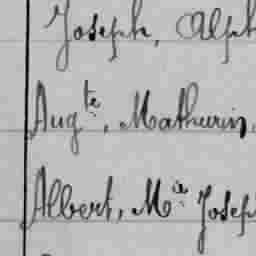 Joseph, Alph
Augte, Mathurin,
Albert, Mie Josep